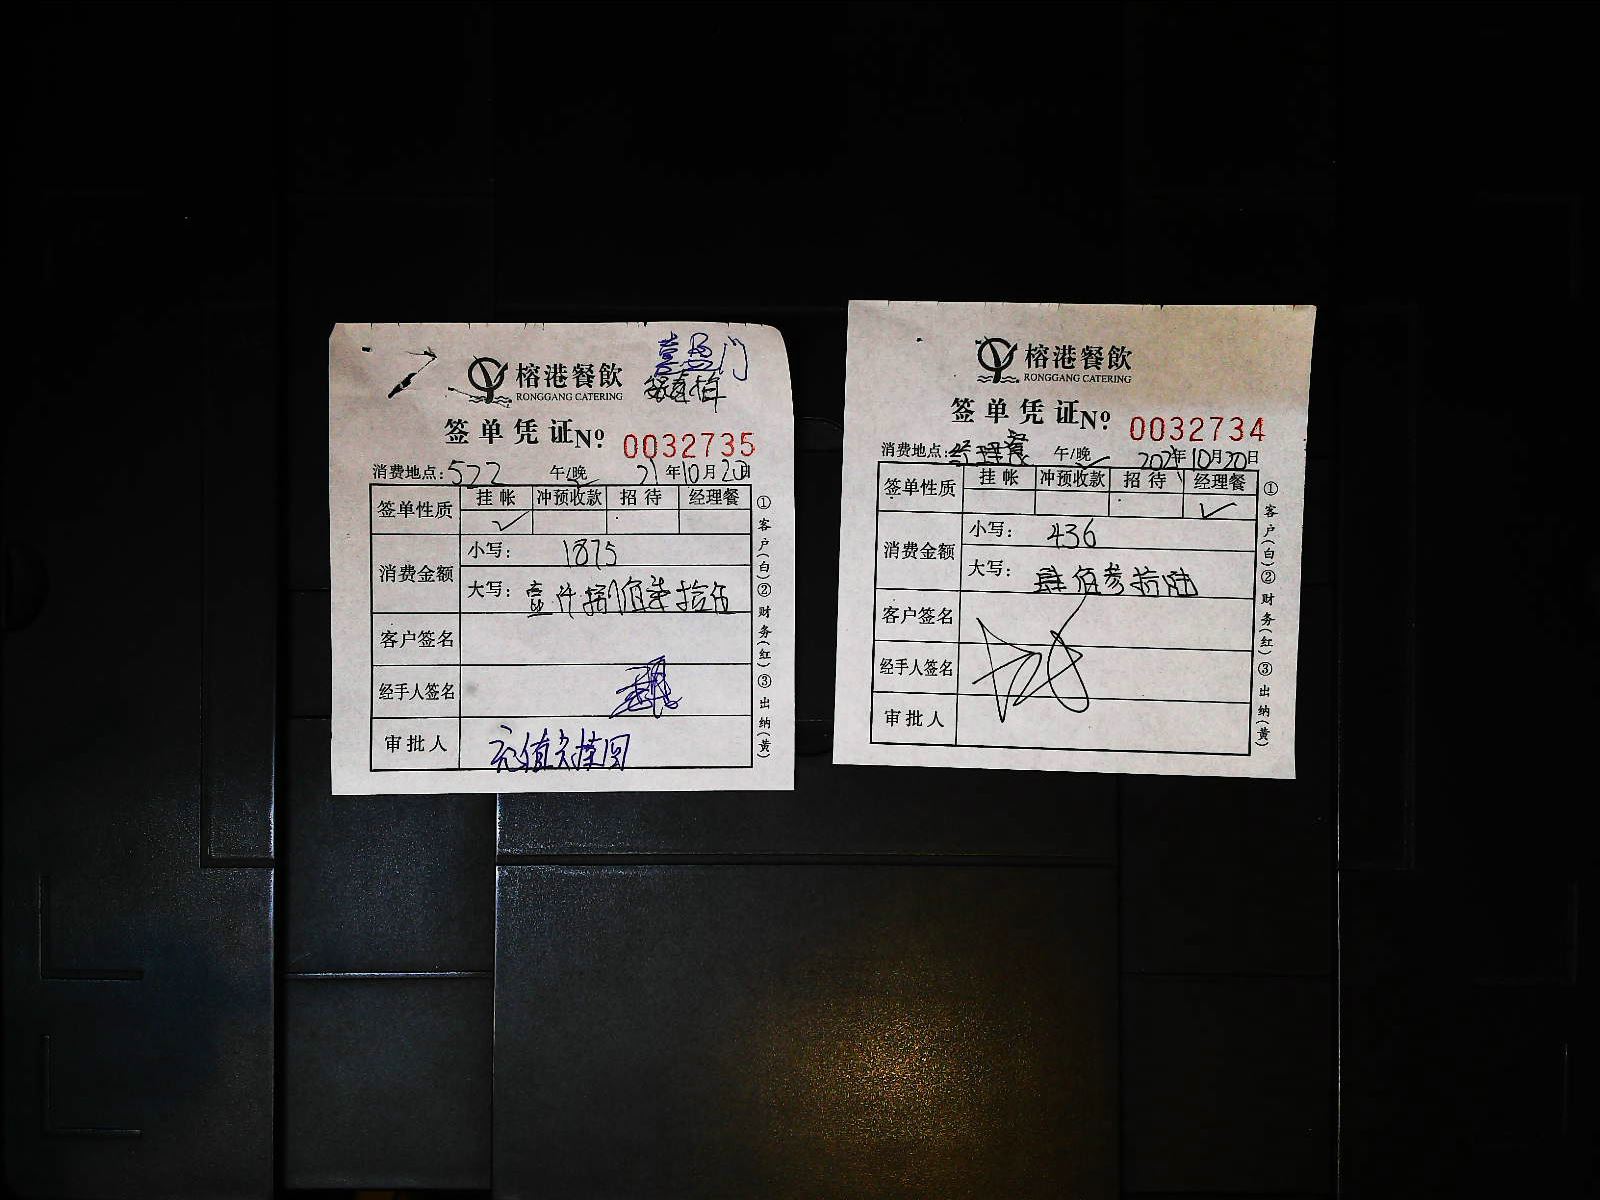 喜盈门
榕港餐飲
RONGGANG CATERING
签单凭证 No. 0032735
消费地点: 522 午/晚 21年10月20日
签单性质 挂帐 冲预收款 招待 经理餐
✓
消费金额
小写: 1875
大写: 壹仟捌佰柒拾伍
客户签名
经手人签名
审批人
①客户(白)②财务(红)③出纳(黄)
榕港餐飲
RONGGANG CATERING
签单凭证 No. 0032734
消费地点: 经理餐 午/晚 2021年10月20日
签单性质 挂帐 冲预收款 招待 经理餐
✓
消费金额
小写: 436
大写: 肆佰参拾陆
客户签名
经手人签名
审批人
①客户(白)②财务(红)③出纳(黄)